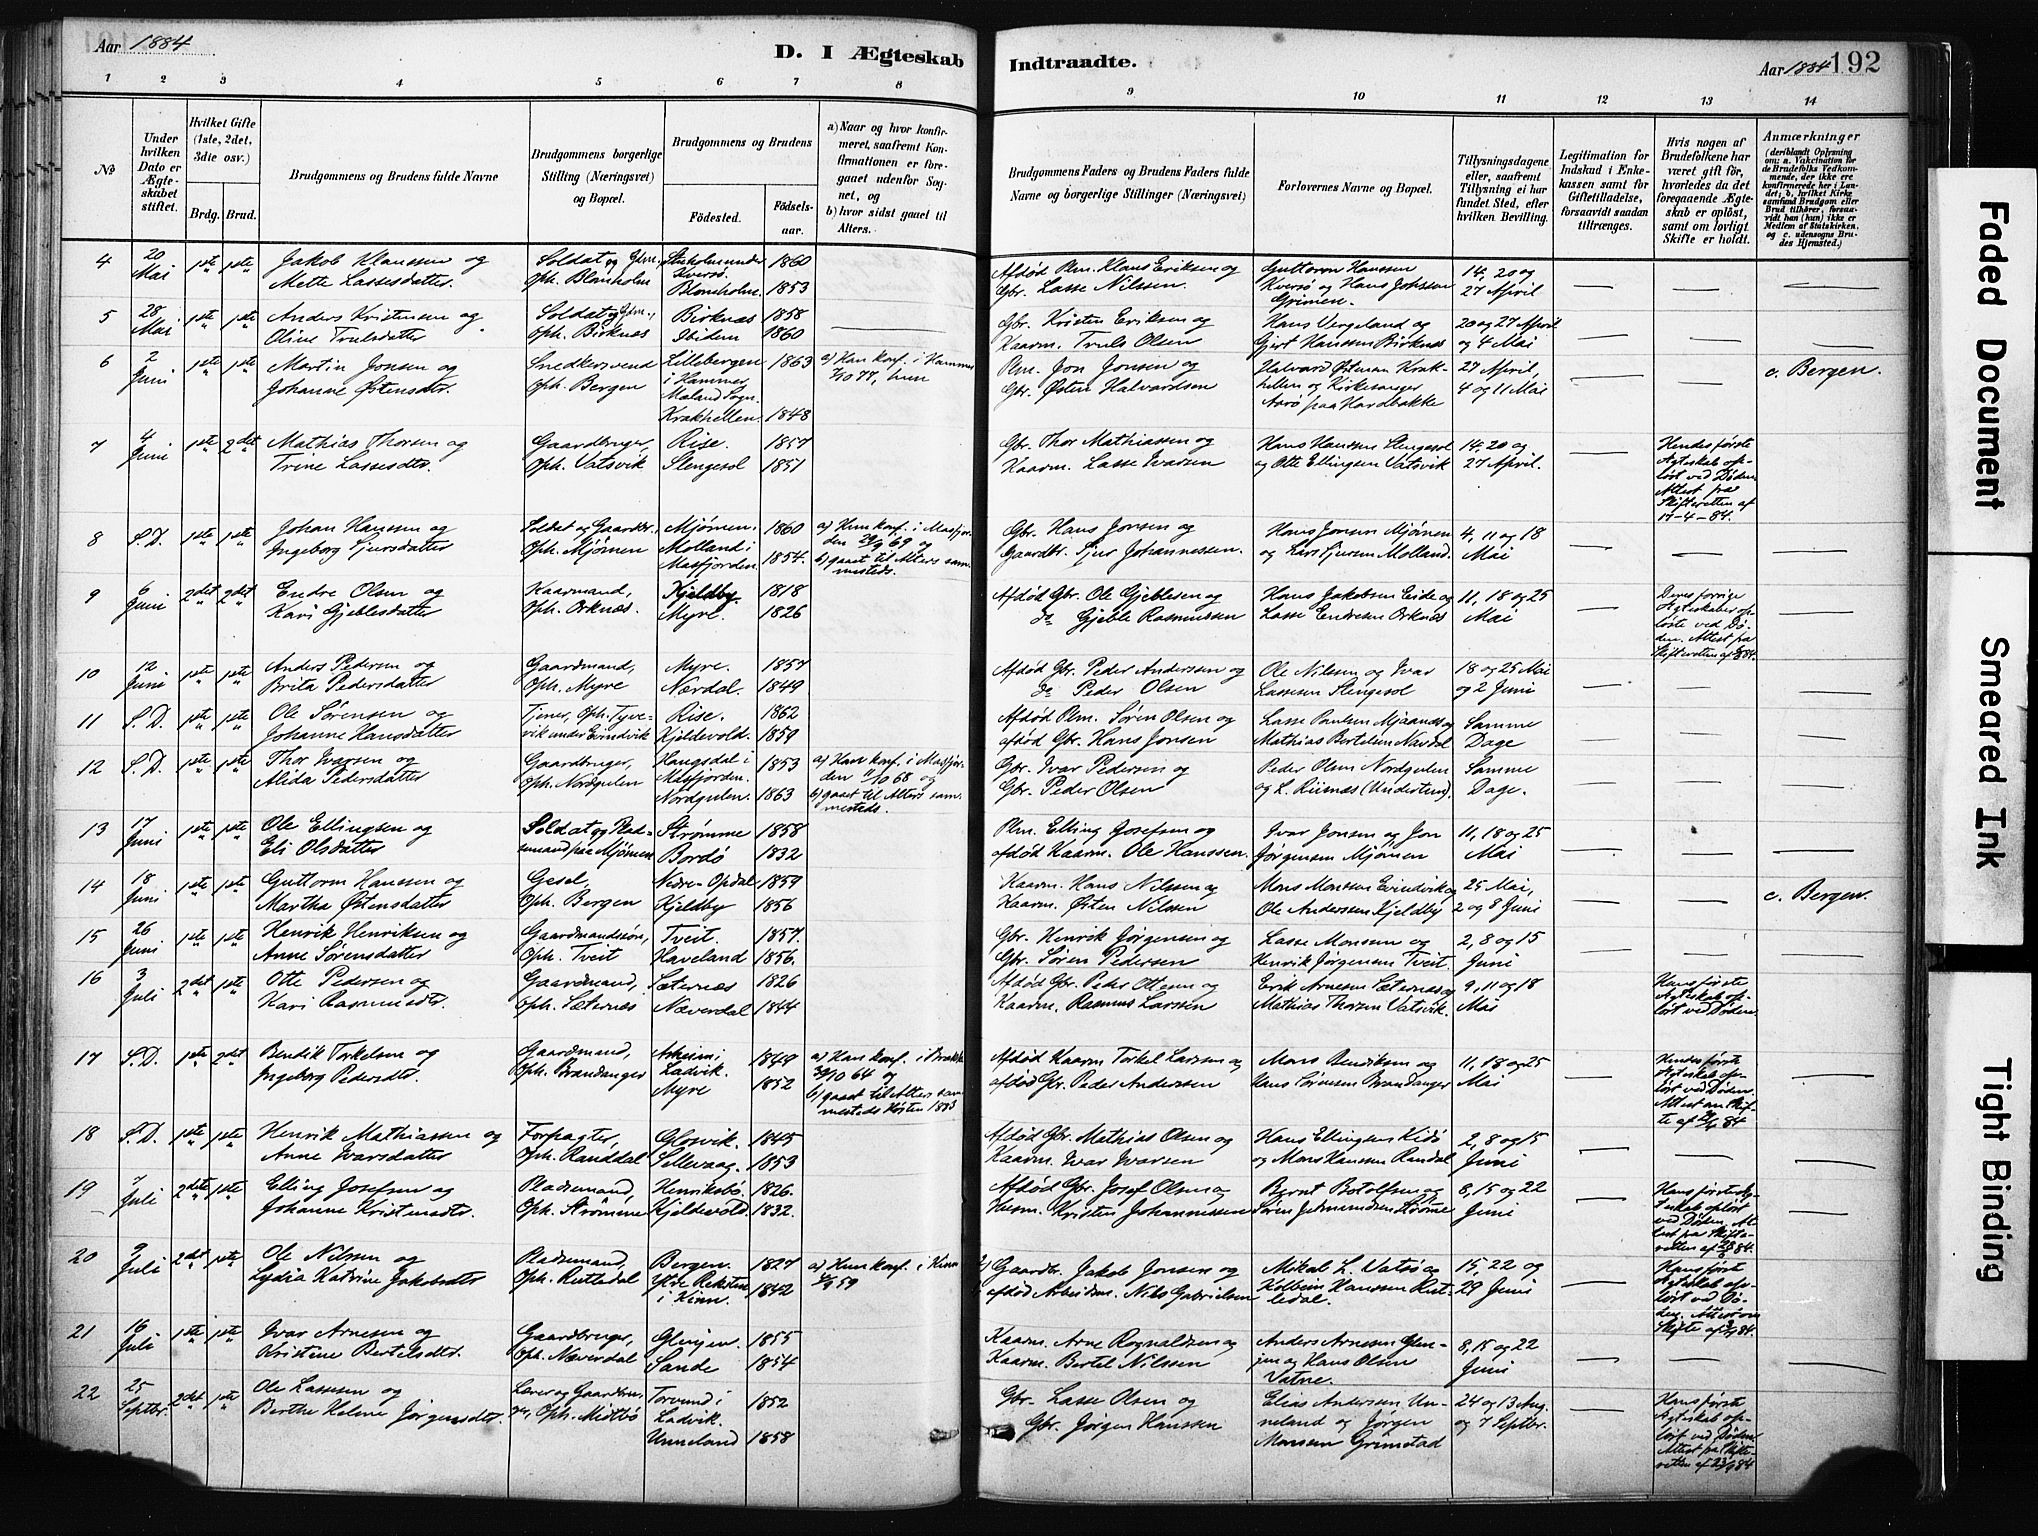 Aar 1884
D. I Ægteskab Indtraadte.
Aar 1884 192
1 2 3 4 5 6 7 8 9 10 11 12 13 14
No
Under hvilken Dato er Ægteskabet stiftet.
Hvilket Gifte (1ste, 2det, 3die osv.)
Brdg. Brud.
Brudgommens og Brudens fulde Navne
Brudgommens borgerlige Stilling (Næringsvei) og Bopæl.
Brudgommens og Brudens
Fødested. Fødselsaar.
a) Naar og hvor konfirmeret, saafremt Konfirmationen er foregaaet udenfor Sognet, og
b) hvor sidst gaaet til Alters.
Brudgommens Faders og Brudens Faders fulde Navne og borgerlige Stillinger (Næringsvei)
Forlovernes Navne og Bopæl.
Tillysningsdagene eller, saafremt Tillysning ei har fundet Sted, efter hvilken Bevilling.
Legitimation for Indskud i Enkekassen samt for Giftetilladelse, forsaavidt saadan tiltrænges.
Hvis nogen af Brudefolkene har været gift før, hvorledes da det foregaaende Ægteskab er opløst, samt om lovligt Skifte er holdt.
Anmærkninger
(deriblandt Oplysning om: a. Vakcination for de Brudefolks Vedkommende, der ikke ere konfirmerede her i Landet; b. hvilket Kirkesamfund Brudgom eller Brud tilhører, forsaavidt han (hun) ikke er Medlem af Statskirken, og c. udensogns Brudes Hjemsted.
4 20 Mai 1ste 1ste
Jakob Klaussen og
Mette Lassesdatter
Soldat og
Oph. Blomholm
Blomholm.
1860
1853
Afdød Plm. Klaus Eriksen og
Gbr. Lasse Nilssen.
Guttorm Hanssen
Kversø og Hans Johnson
Grimen.
14, 20 og
27 April
5 28 Mai 1ste 1ste
Anders Kristensen og
Oline Trulsdatter
Soldat og
Oph. Birknæs
Birknæs
Ibidem
1858
1860
Gbr. Kristen Eriksen og
Kaarm. Truls Olsen
Hans Vergeland og
Gjert Hanssen Birknæs
20 og 27 April
og 4 Mai
6 2 Juni 1ste 1ste
Martin Jonsen og
Johanne Østensdatter.
Snedkersvend
Oph. Bergen
Lillebergen
i Hammer
Mæland Sogn.
Krakhellen.
1863
1848
a) Han konf. i Hammer
7/10 77, hun
Plm. Jon Jonsen og
Gbr. Østen Halvardsen
Halvard Østensen Krakhellen og Kirkesanger
Aarø paa Hardbakke
27 April,
4 og 11 Mai
c. Bergen.
7 4 Juni 1ste 2det
Mathias Thorsen og
Trine Lassesdtr.
Gaardbruger,
Oph. Vatsvik
Rise.
Slengesol
1857
1851
Gbr. Thor Mathiassen og
Kaarm. Lasse Ivarsen
Hans Hanssen Slengesol
og Otte Ellingsen Vatsvik
14, 20 og
27 April.
Hendes første
Ægteskab opløst ved Døden.
Attest fra
Skifteretten af
17-4-84.
8 S.D. 1ste 1ste
Johan Hanssen og
Ingeborg Sjursdatter
Soldat og Gaardbr.
Oph. Mjømen
Mjømen.
Molland i
Masfjorden.
1860
1854.
a) Hun konf. i Masfjorden 29/9 69 og
b) gaaet til Alters sammesteds.
Gbr. Hans Jonsen og
Gaardbr. Sjur Johannessen.
Hans Jonsen Mjømen
og Lars Sjursen Molland.
4, 11 og 18
Mai
9 6 Juni 2det 2det
Endre Olsen og
Kari Gjeblesdatter
Kaarmand,
Oph. Orknæs.
Kjeldby.
Myre.
1818
1826
Afdød Gbr. Ole Gjeblesen og
do Gjeble Rasmussen
Hans Jakobsen Eide og
Lasse Endresen Orknæs
11, 18 og 25
Mai
Deres forrige
Ægteskaber opløste ved Døden. Attest fra
10 12 Juni 1ste 1ste
Anders Pedersen og
Brita Pedersdatter
Gaardmand,
Oph. Myre
Myre.
Nordal.
1857
1849
Afdød Gbr. Peder Anderssen og
do Peder Olsen
Ole Nilssen og Ivar
Lassesen Slengesol
18 og 25 Mai
og 2 Juni
11 S.D. 1ste 1ste
Ole Sørensen og
Johanne Hansdatter
Tjener, Oph. Tyvevik under Evindvik
Rise.
Kjeldevold.
1862
1859
Afdød Plm. Søren Olsen og
afdød Gbr. Hans Jonsen
Lasse Paulsen Mjaanæs og
Mathias Bertelsen Navdal
Samme
Dage
12 S.D. 1ste 1ste
Thor Ivarsen og
Alida Pedersdatter
Gaardbruger,
Oph. Nordgulen
Haugsdal i
Masfjorden.
Nordgulen.
1853
1863
a) Han konf. i Masfjorden 4/10 68 og
b) gaaet til Alters sammesteds.
Gbr. Ivar Pedersen og
Gbr. Peder Olsen
Peder Olsen Nordgulen
og L. Risnæs (Understem).
Samme
Dage.
13 17 Juni 1ste 1ste
Ole Ellingsen og
Eli Olsdatter
Soldat og Pladsemand paa Mjømen
Strømme
Bordø
1858
1832
Plm. Elling Josefsen og
afdød Kaarm. Ole Hanssen.
Ivar Jonsen og Jon
Jørgensen Mjømen
11, 18 og 25
Mai
14 18 Juni 1ste 1ste
Guttorm Hanssen og
Martha Østensdatter
Gesel,
Oph. Bergen
Nedre-Opdal
Kjeldby
1859
1856
Kaarm. Hans Nilssen og
Kaarm. Østen Nilssen
Mons Monssen Evindvik og
Ole Anderssen Kjeldby
25 Mai,
2 og 8 Juni
c. Bergen.
15 26 Juni 1ste 1ste
Henrik Henriksen og
Anne Sørensdatter
Gaardmandssøn,
Oph. Tveit
Tveit.
Haveland
1857.
1856.
Gbr. Henrik Jørgensen og
Gbr. Søren Pedersen
Lasse Monssen og
Henrik Jørgensen Tveit.
2, 8 og 15
Juni
16 3 Juli 2det 1ste
Otte Pedersen og
Kari Rasmusdtr.
Gaardmand,
Oph. Sæternæs
Sæternæs
Næverdal
1826
1844
Afdød Gbr. Peder Ottesen og
Kaarm. Rasmus Larssen
Erik Arnesen Sæternæs og
Mathias Thorsen Vatsvik.
9, 11 og 18
Mai
Hans første
Ægteskab opløst ved Døden
17 S.D. 1ste 2det
Bendik Torkelsen og
Ingeborg Pedersdtr.
Gaardmand,
Oph. Brandanger
Askeim i
Ladvik.
Myre
1849
1852
a) Han konf. i Brække
30/10 64 og
b) gaaet til Alters sammesteds Høsten 1883
Afdød Kaarm Torkel Larssen og
afdød Gbr. Peder Andersen
Mons Bendiksen og
Hans Sørensen Brandanger
11, 18 og 25
Mai
Hendes første
Ægteskab opløst ved Døden.
Attest om Skifte af
18 S.D. 1ste 1ste
Henrik Mathiassen og
Anne Ivarsdatter
Forpagter,
Oph. Randdal
Glosvik.
Sellevaag.
1845
1853
Afdød Gbr. Mathias Olsen og
Kaarm. Ivar Ivarsen
Hans Ellingsen Eidø
og Mons Hanssen Randal
2, 8 og 15
Juni
19 7 Juli 2det 1ste
Elling Josefsen og
Johanne Kristensdtr.
Pladsemand,
Oph. Strømme
Henriksbø.
Kjeldevold.
1826.
1832.
Afdød Gbr. Josef Olsen og
Husm. Kristen Johannessen
Bernt Botolfsen og
Søren Strømme
8, 15 og 22
Juni
Hans første Ægteskab opløst
ved Døden. Attest fra Skifteretten af
20 9 Juli 2det 1ste
Ole Nilssen og
Lydia Katrine Jakobsdtr
Pladsemand,
Oph. Rutledal
Bergen.
Ytre Reksten
i Kinn.
1827
1842
a) Hun konf. i Kinn
Gaardbr. Jakob Jonsen og
afdød Arbeidsm. Nils Gabrielsen
Mikal L. Vatsø og
Kolbein Hanssen Rutledal.
15, 22 og
29 Juni
Hans først
Ægteskab opløst ved Døden. Attest om
Skifte af
21 16 Juli 1ste 1ste
Ivar Arnesen og
Kristine Bertelsdtr.
Gaardbruger,
Oph. Næverdal
Glenjen.
Sande
1855
1854
Kaarm. Arne Rognaldsen og
Kaarm. Bertel Nilssen
Anders Arnesen Glenjen og Hans Olsen
Vatne.
8, 15 og 22
Juni
22 25 Septbr. 2det 1ste
Ole Lassesen og
Berthe Helene Jørgensdtr.
Lærer og Gaardbruger, Oph. Midtbø
Torvund i
Ladvik.
Unneland
1852
1858
Gbr. Lasse Olsen og
Gbr. Jørgen Hanssen
Elias Andersen Unneland og Jørgen
Monssen Grimstad
24 og 13 Aug.
og 7 Septbr.
Hans første
Ægteskab opløst ved Døden
Attest fra Skifteretten af 23/9 84
Faded Document
Smeared Ink
Tight Binding